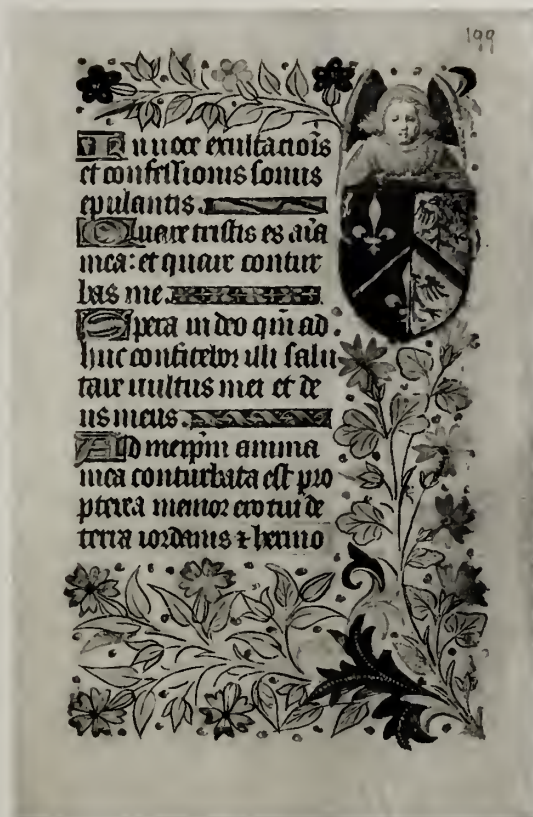 199
In uoce exultaciois
et confessionis sonus
epulantis.
Quare tristis es aia
mea: et quare contur
bas me.
Spera in deo qm ad
huc confitebor illi salu
tare uultus mei et de
us meus.
AD meipm anima
mea conturbata est pro
pterea memor ero tui de
terra iordanis ⁊ hermo